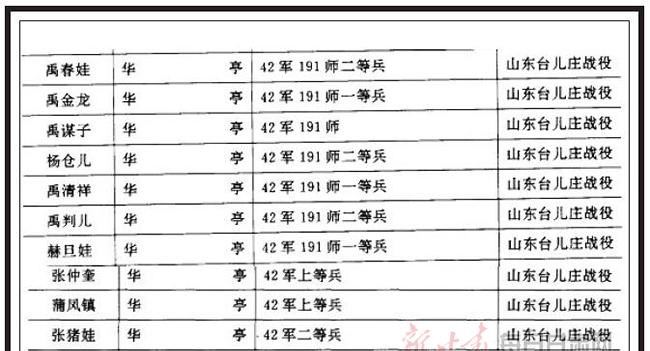 禹春娃 华 亭 42军191师二等兵 山东台儿庄战役
禹金龙 华 亭 42军191师一等兵 山东台儿庄战役
禹谋子 华 亭 42军191师 山东台儿庄战役
杨仓儿 华 亭 42军191师二等兵 山东台儿庄战役
禹清祥 华 亭 42军191师一等兵 山东台儿庄战役
禹判儿 华 亭 42军191师二等兵 山东台儿庄战役
赫旦娃 华 亭 42军191师一等兵 山东台儿庄战役
张仲奎 华 亭 42军上等兵 山东台儿庄战役
蒲凤镇 华 亭 42军上等兵 山东台儿庄战役
张猪娃 华 亭 42军二等兵 山东台儿庄战役